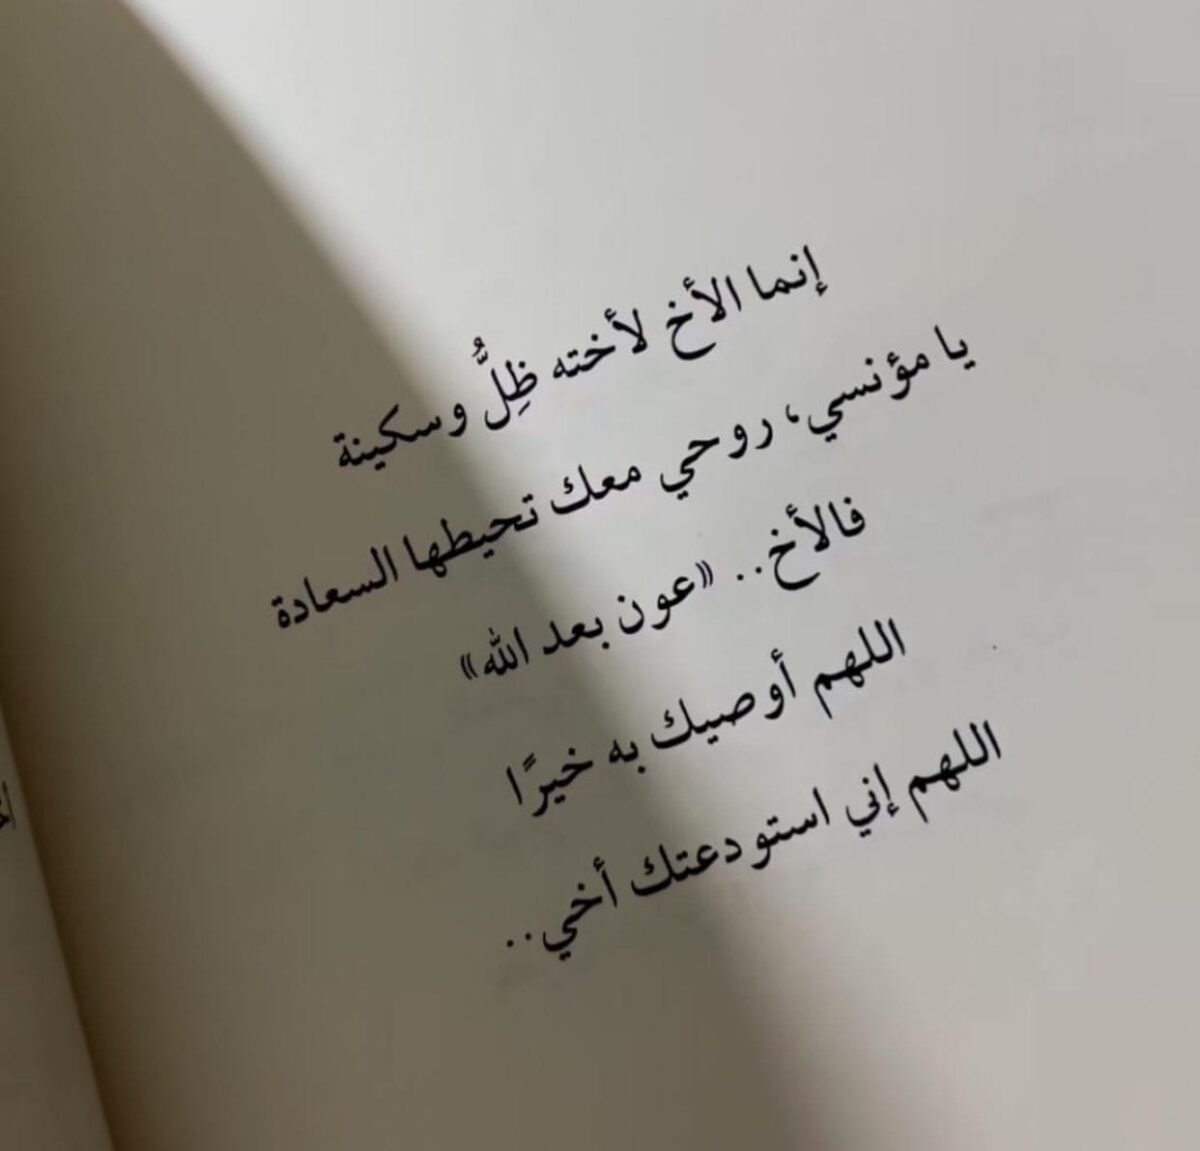 إنما الأخ لأخته ظِلُّ وسكينة
يا مؤنسي، روحي معك تحيطها السعادة
فالأخ.. «عون بعد الله»
اللهم أوصيك به خيرًا
اللهم إني استودعتك أخي..